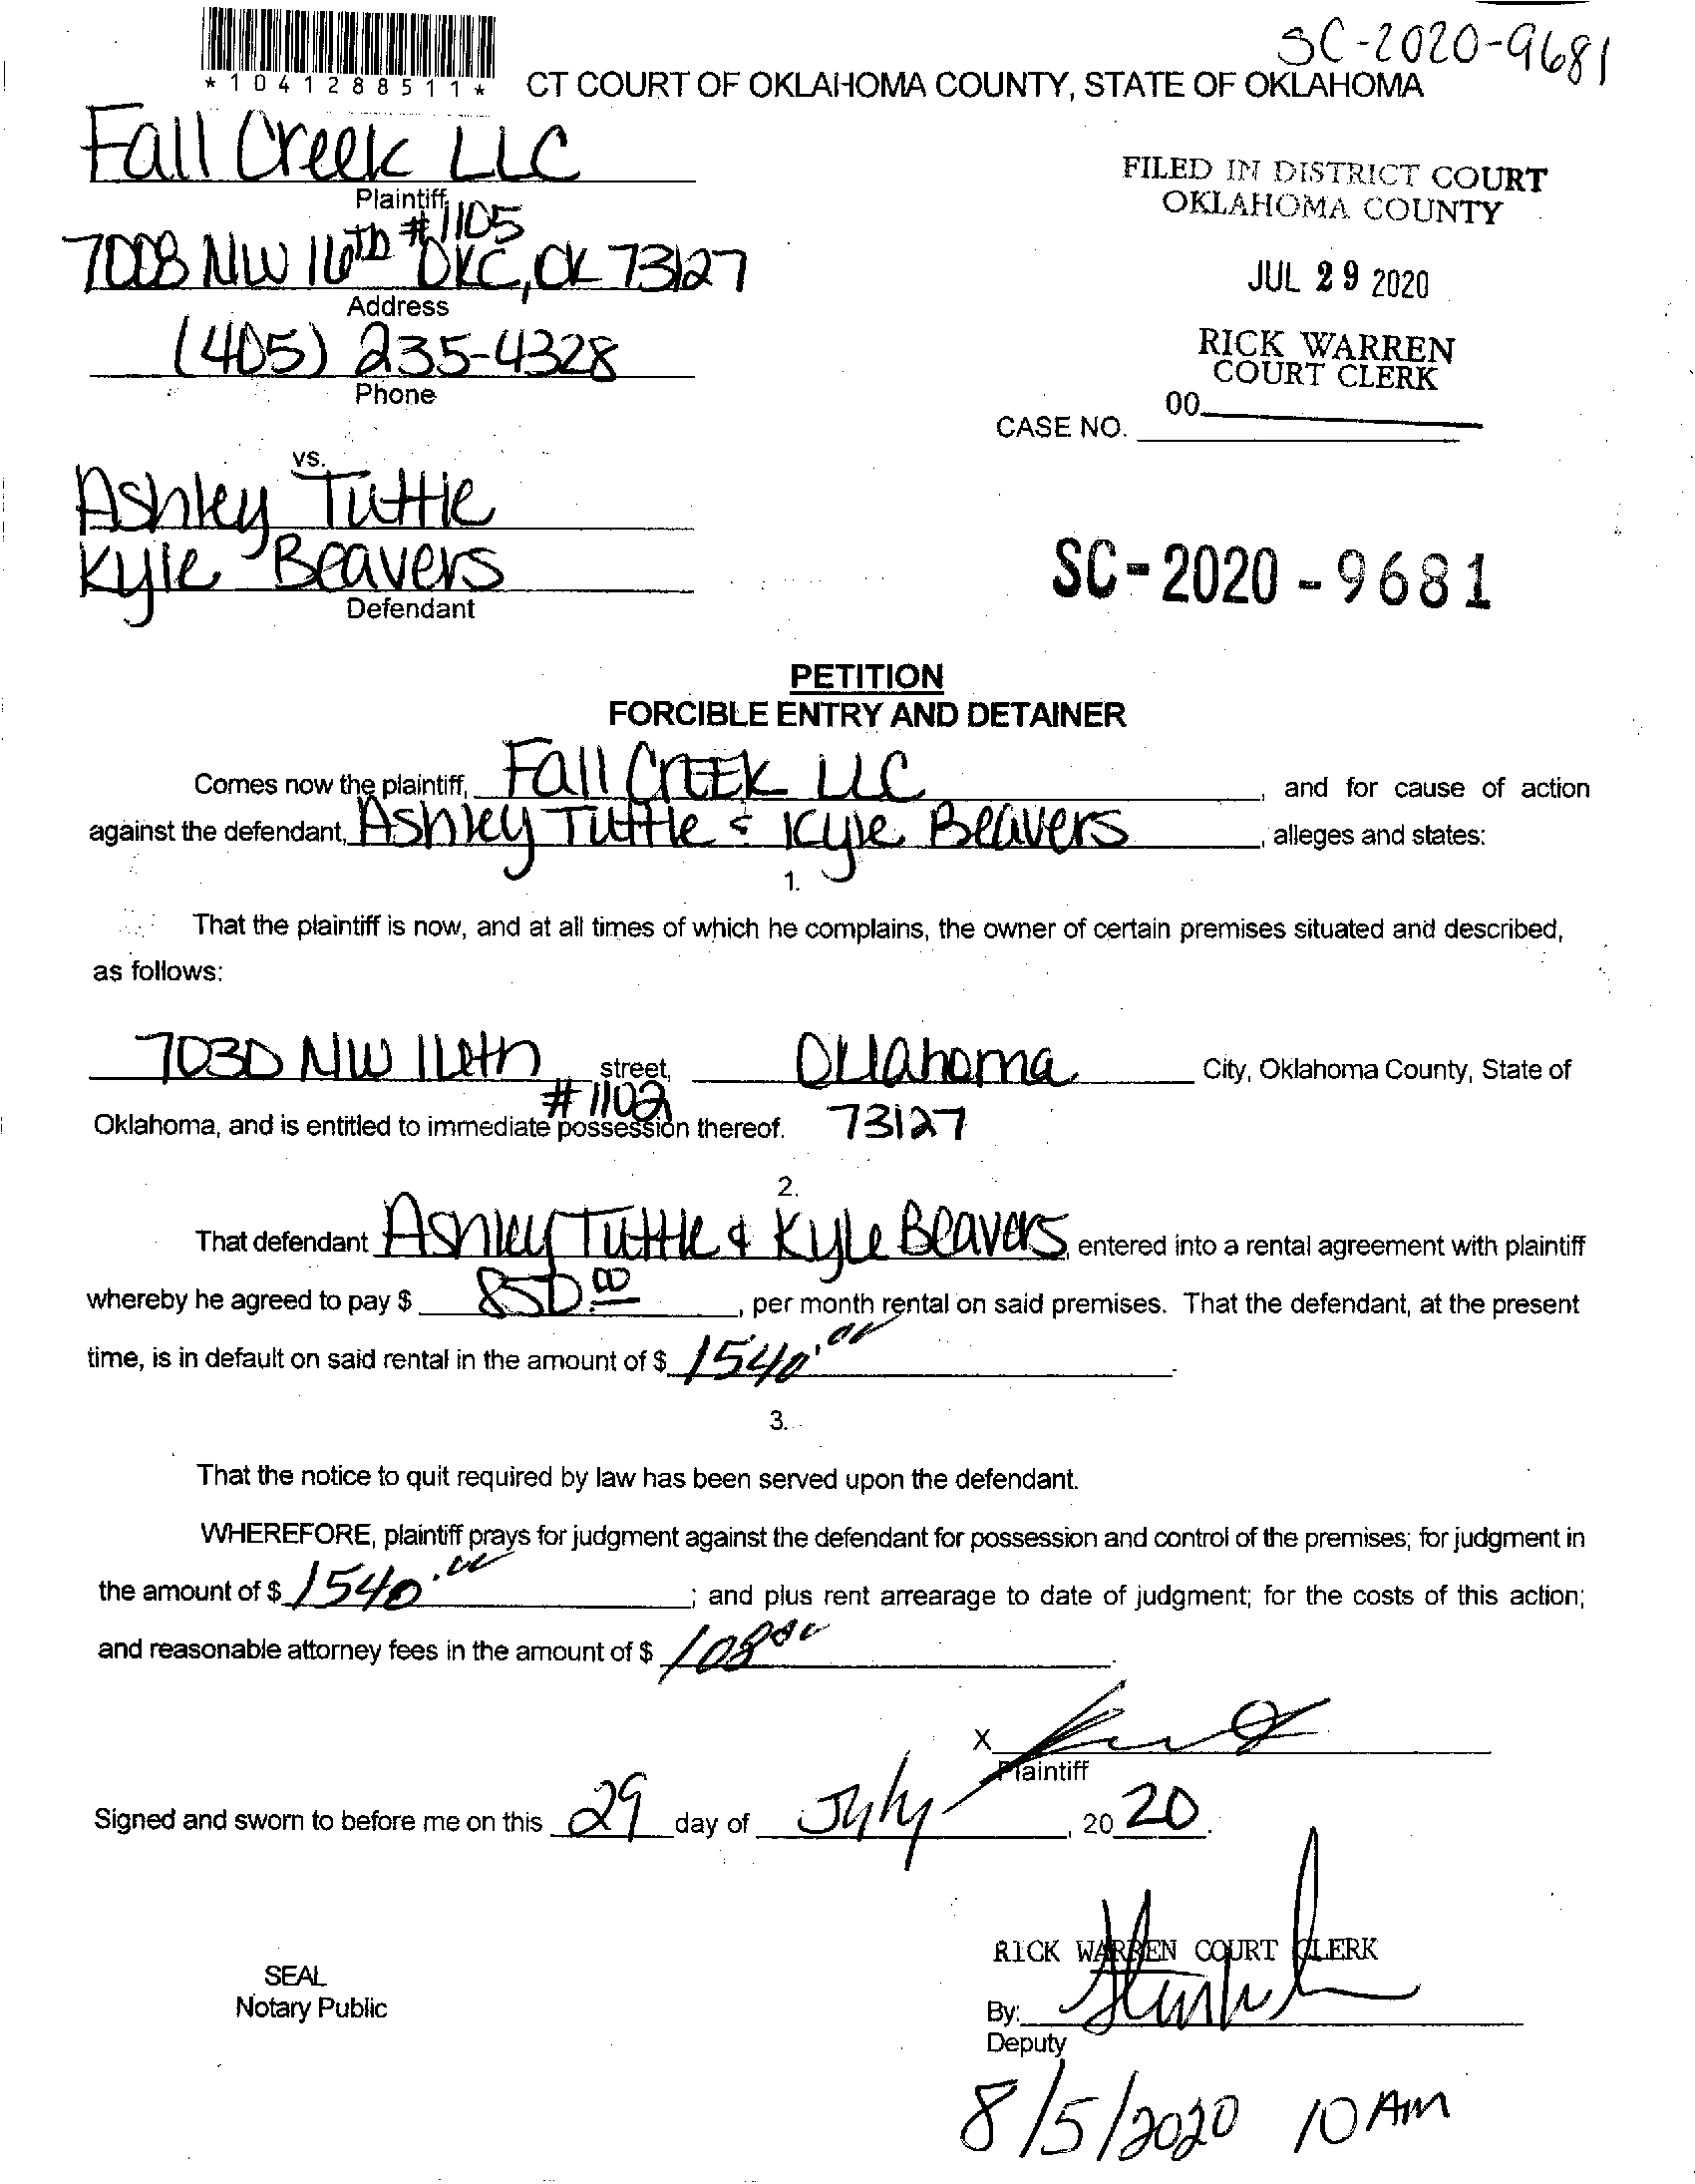 SC-2020-9681
*1041288511*
CT COURT OF OKLAHOMA COUNTY, STATE OF OKLAHOMA
Fall Creek LLC
Plaintiff
FILED IN DISTRICT COURT
OKLAHOMA COUNTY
#1105
7008 NW 16TH OKC, OK 73127
Address
JUL 29 2020
(405) 235-4328
Phone
RICK WARREN
COURT CLERK
00
CASE NO.
vs.
Ashley Tuttle
Kyle Beavers
Defendant
SC-2020-9681
PETITION
FORCIBLE ENTRY AND DETAINER
Comes now the plaintiff, Fall CREEK LLC, and for cause of action
against the defendant, Ashley Tuttle & Kyle Beavers, alleges and states:
1.
That the plaintiff is now, and at all times of which he complains, the owner of certain premises situated and described,
as follows:
7030 NW 16th street, Oklahoma City, Oklahoma County, State of
#1102
Oklahoma, and is entitled to immediate possession thereof. 73127
2.
That defendant Ashley Tuttle & Kyle Beavers, entered into a rental agreement with plaintiff
whereby he agreed to pay $ 850.00, per month rental on said premises. That the defendant, at the present
time, is in default on said rental in the amount of $ 1540.00.
3.
That the notice to quit required by law has been served upon the defendant.
WHEREFORE, plaintiff prays for judgment against the defendant for possession and control of the premises; for judgment in
the amount of $ 1540.00; and plus rent arrearage to date of judgment; for the costs of this action;
and reasonable attorney fees in the amount of $ 108.00.
X
Plaintiff
Signed and sworn to before me on this 29 day of July, 20 20.
RICK WARREN COURT CLERK
SEAL
Notary Public
By:
Deputy
8/5/2020 10 AM